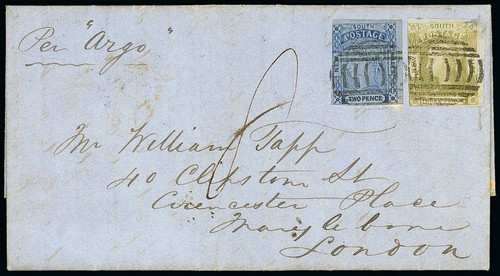 Per "Argo"
SOUTH
POSTAGE
TWO PENCE
SOUTH
POSTAGE
8
Mr William Tapp
40 Clipstom St
Cirencester Place
Mary le bone
London